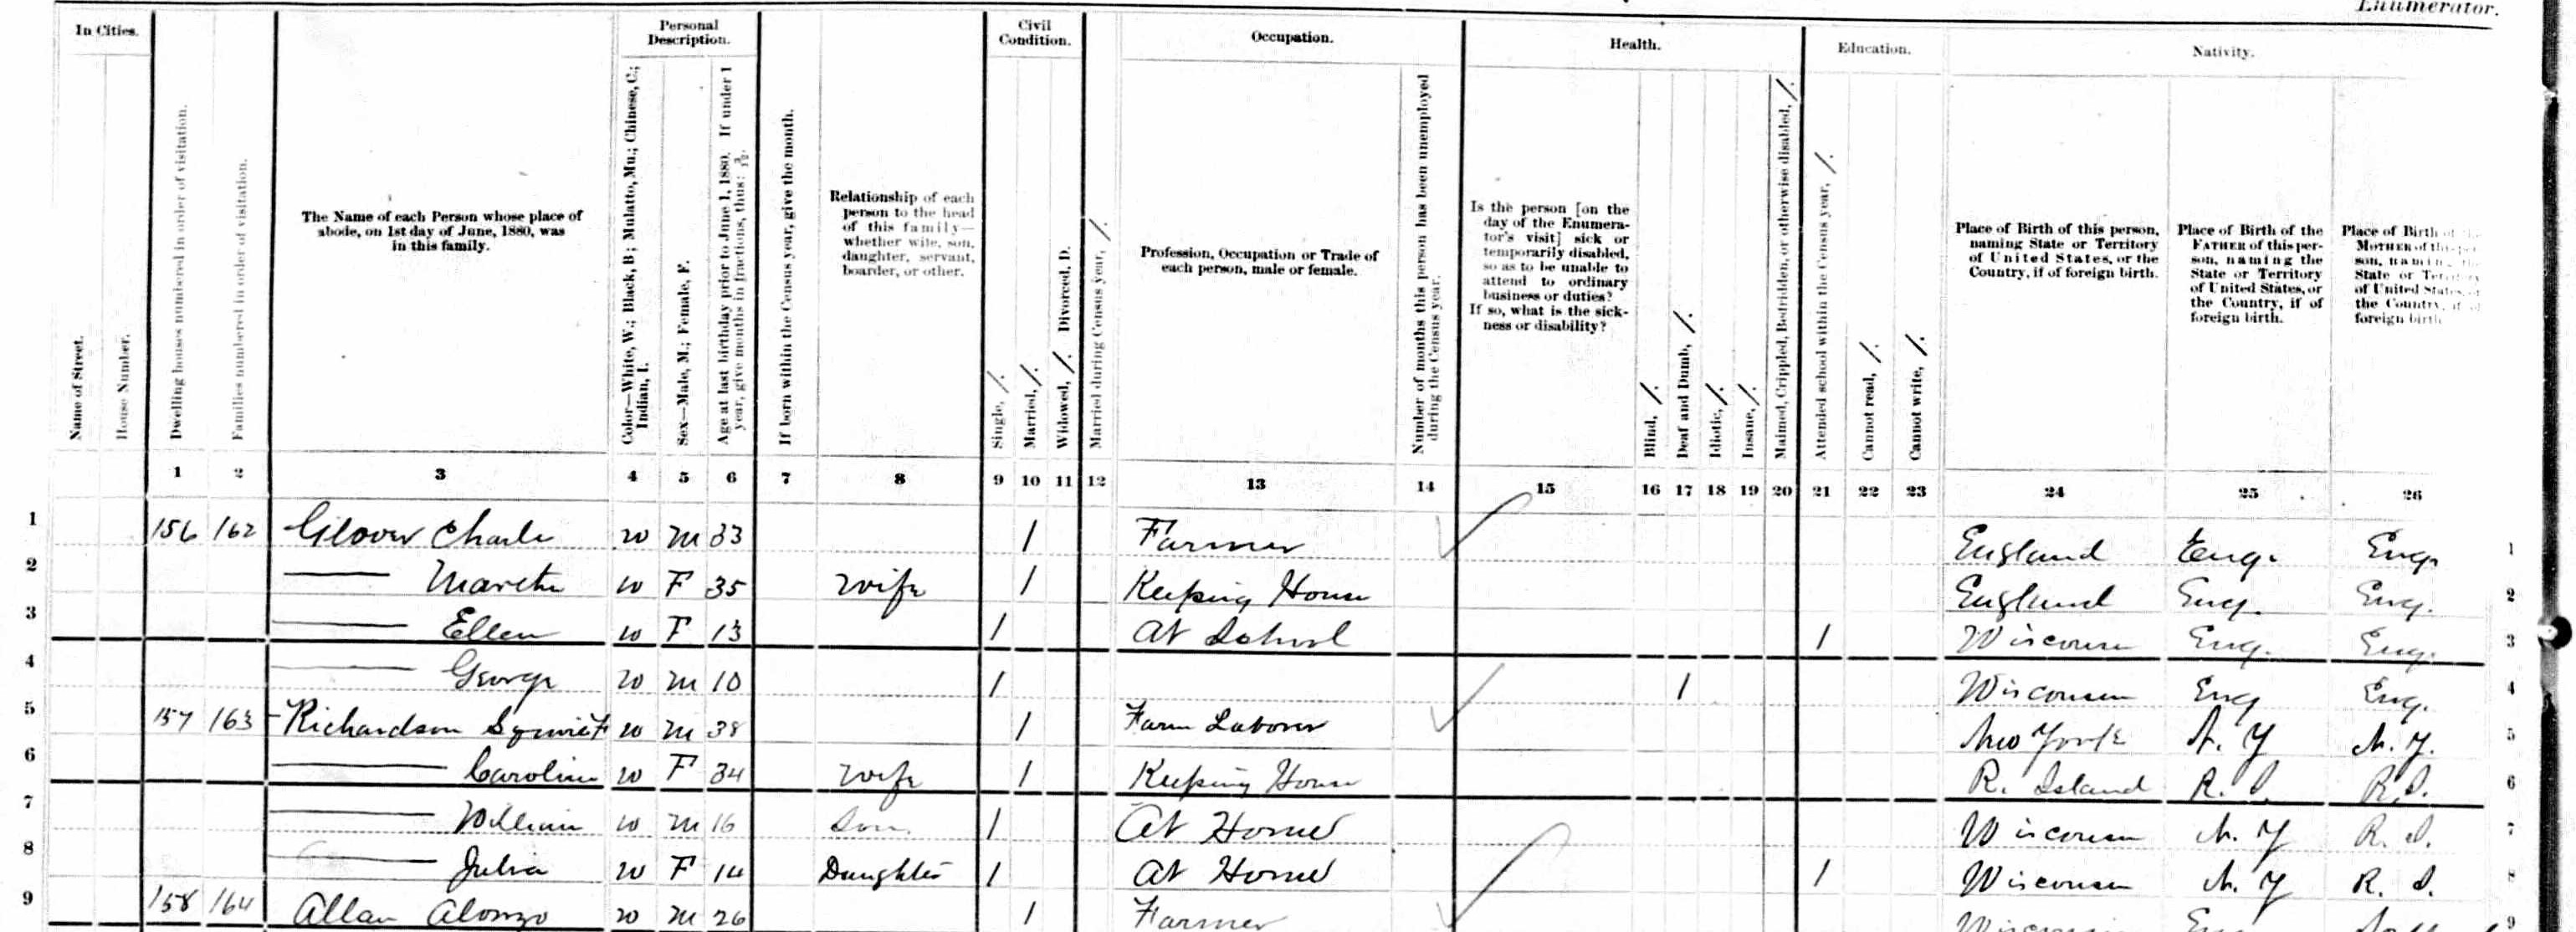 Enumerator.
In Cities.
Personal Description.
Civil Condition.
Occupation.
Health.
Education.
Nativity.
Name of Street.
House Number.
Dwelling houses numbered in order of visitation.
Families numbered in order of visitation.
The Name of each Person whose place of
abode, on 1st day of June, 1880, was
in this family.
Color—White, W.; Black, B; Mulatto, Mu.; Chinese, C.;
Indian, I.
Sex—Male, M.; Female, F.
Age at last birthday prior to June 1, 1880. If under 1
year, give months in fractions, thus: 3/12.
If born within the Census year, give the month.
Relationship of each
person to the head
of this family—
whether wife, son,
daughter, servant,
boarder, or other.
Single, /.
Married, /.
Widowed, /. Divorced, D.
Married during Census year, /.
Profession, Occupation or Trade of
each person, male or female.
Number of months this person has been unemployed
during the Census year.
Is the person [on the
day of the Enumera-
tor's visit] sick or
temporarily disabled,
so as to be unable to
attend to ordinary
business or duties?
If so, what is the sick-
ness or disability?
Blind, /.
Deaf and Dumb, /.
Idiotic, /.
Insane, /.
Maimed, Crippled, Bedridden, or otherwise disabled, /.
Attended school within the Census year, /.
Cannot read, /.
Cannot write, /.
Place of Birth of this person,
naming State or Territory
of United States, or the
Country, if of foreign birth.
Place of Birth of the
FATHER of this per-
son, naming the
State or Territory
of United States, or
the Country, if of
foreign birth.
Place of Birth of the
MOTHER of this per-
son, naming the
State or Territory
of United States, or
the Country, if of
foreign birth
1 2 3 4 5 6 7 8 9 10 11 12 13 14 15 16 17 18 19 20 21 22 23 24 25 26
1 156 162 Glover Charle W M 33 / Farmer England Eng. Eng. 1
2 — Martha W F 35 Wife / Keeping House England Eng. Eng. 2
3 — Ellen W F 13 / At School / Wisconsin Eng. Eng. 3
4 — George W M 10 / / Wisconsin Eng Eng. 4
5 157 163 Richardson W M 38 / Farm Laborer New York N. Y N. Y. 5
6 — Caroline W F 34 Wife / Keeping House R. Island R. I. R. I. 6
7 — William W M 16 Son / At Home Wisconsin N. Y R. I. 7
8 — Julia W F 14 Daughter / At Home / Wisconsin N. Y R. I. 8
9 158 164 Allan Alonzo W M 26 / Farmer Wisconsin 9